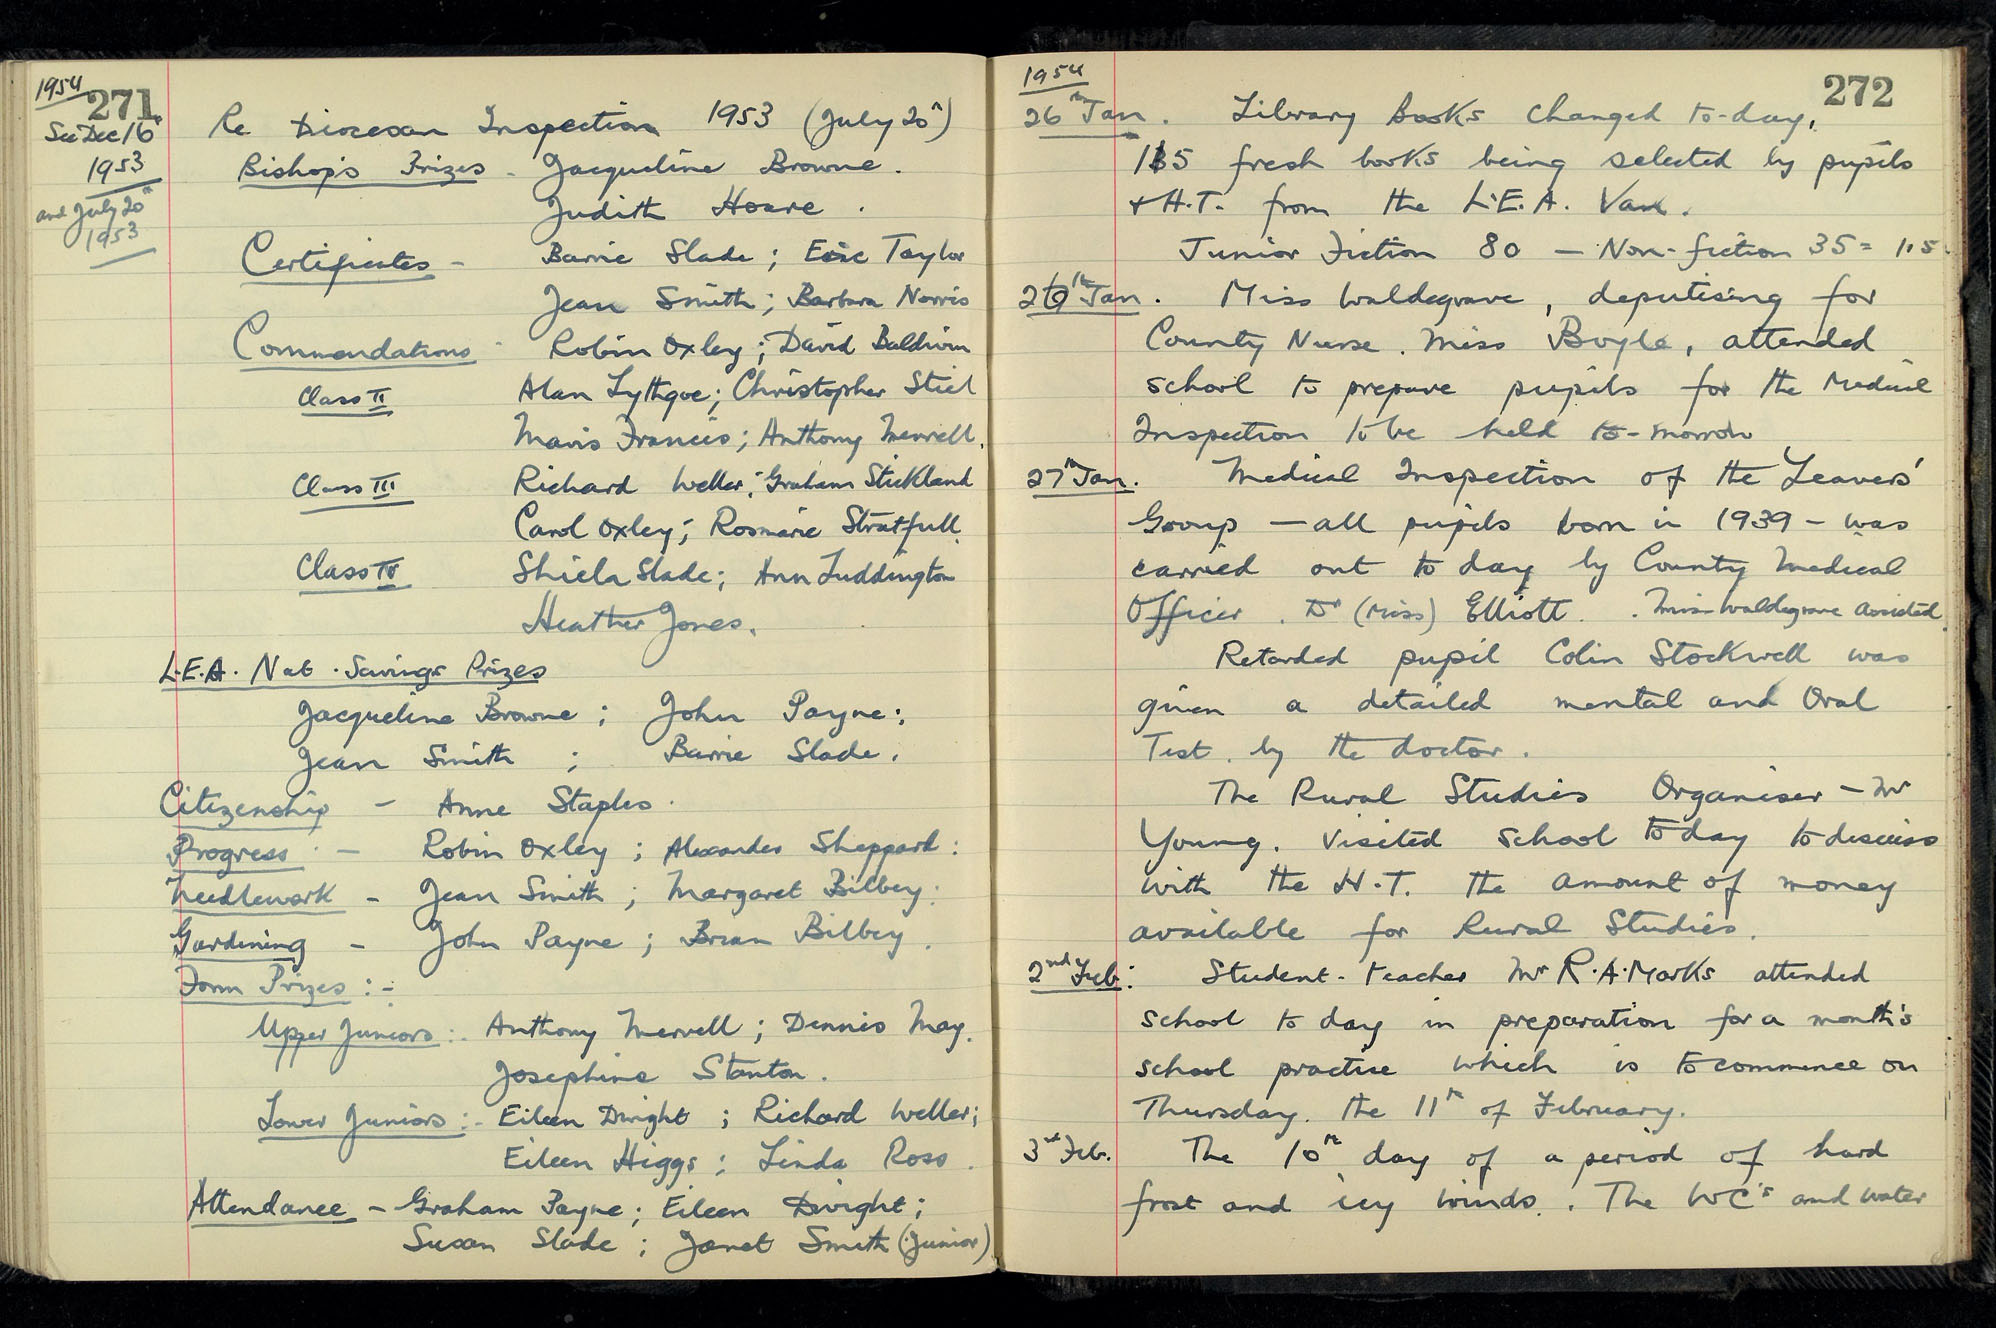 1954
271
See Dec 16th
1953
and July 20th
1953
Re Diocesan Inspection 1953 (July 20th)
Bishop's Prizes - Jacqueline Browne.
Judith Hoare.
Certificates - Barrie Slade; Eric Taylor
Jean Smith; Barbara Norris
Commendations - Robin Oxley; David Baldwin
Class II Alan Lythgoe; Christopher Stiel
Mavis Francis; Anthony Merrell.
Class III Richard Weller; Graham Stickland
Carol Oxley; Rosmarie Stratfull.
Class IV Shiela Slade; Ann Luddington
Heather Jones.
L.E.A. Nat. Savings Prizes
Jacqueline Browne; John Payne;
Jean Smith; Barrie Slade.
Citizenship - Anne Staples.
Progress - Robin Oxley; Alexander Sheppard:
Needlework - Jean Smith; Margaret Bilbey:
Gardening - John Payne; Brian Bilbey.
Form Prizes:-
Upper Juniors:- Anthony Merrell; Dennis May.
Josephine Stanton.
Lower Juniors:- Eileen Dwight; Richard Weller;
Eileen Higgs; Linda Ross.
Attendance - Graham Payne; Eileen Dwight;
Susan Slade; Janet Smith (Junior)
1954
272
26th Jan. Library Books changed to-day,
115 fresh books being selected by pupils
& H.T. from the L.E.A. Van.
Junior Fiction 80 - Non-fiction 35 = 115.
26th Jan. Miss Waldegrave, deputising for
County Nurse. Miss Boyle, attended
school to prepare pupils for the Medical
Inspection to be held to-morrow
27th Jan. Medical Inspection of the Leavers'
Group - all pupils born in 1939 - was
carried out to day by County Medical
Officer. Dr (Miss) Elliott. Miss Waldegrave assisted.
Retarded pupil Colin Stockwell was
given a detailed mental and Oral
Test by the doctor.
The Rural Studies Organiser - Mr
Young. Visited school to day to discuss
with the H.T. the amount of money
available for Rural Studies.
2nd Feb: Student-teacher Mr R.A. Marks attended
school to day in preparation for a month's
school practise which is to commence on
Thursday. the 11th of February.
3rd Feb. The 10th day of a period of hard
frost and icy winds. The WC's and water